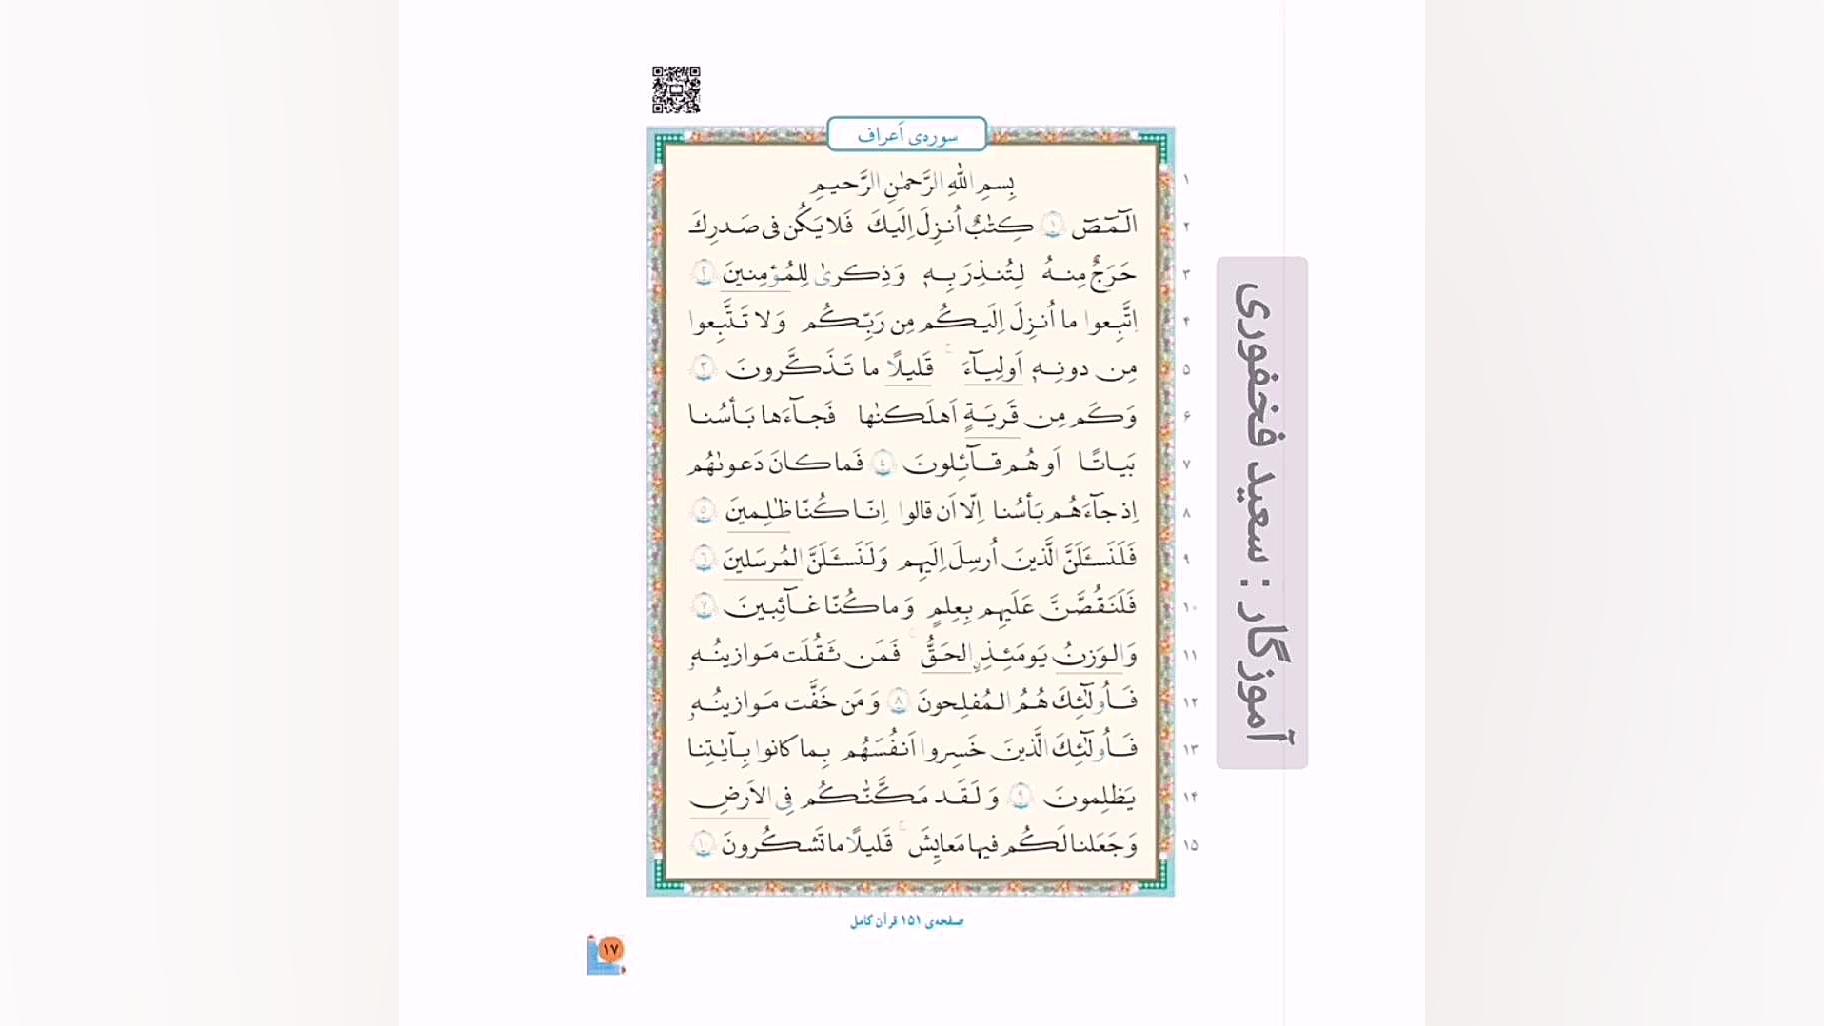 سوره‌ی اَعراف
بِسمِ اللهِ الرَّحمٰنِ الرَّحیمِ ١
الٓـمٓـصٓ ١ کِتٰبٌ اُنزِلَ اِلَیکَ فَلا یَکُن فی صَدرِکَ ٢
حَرَجٌ مِنهُ لِتُنذِرَ بِه۪ وَ ذِکریٰ لِلمُؤمِنینَ ٢ ٣
اِتَّبِعوا ما اُنزِلَ اِلَیکُم مِن رَبِّکُم وَ لا تَتَّبِعوا ۴
مِن دونِه۪ اَولِیآءَ ۚ قَلیلًا ما تَذَکَّرونَ ٣ ۵
وَ کَم مِن قَریَةٍ اَهلَکنٰها فَجآءَها بَأسُنا ۶
بَیاتًا اَو هُم قآئِلونَ ٤ فَما کانَ دَعوٰهُم ٧
اِذ جآءَهُم بَأسُنا اِلّا اَن قالوا اِنّا کُنّا ظٰلِمینَ ٥ ٨
فَلَنَسـَٔلَنَّ الَّذینَ اُرسِلَ اِلَیهِم وَ لَنَسـَٔلَنَّ المُرسَلینَ ٦ ٩
فَلَنَقُصَّنَّ عَلَیهِم بِعِلمٍ وَ ما کُنّا غآئِبینَ ٧ ١٠
وَ الوَزنُ یَومَئِذٍ الحَقُّ ۚ فَمَن ثَقُلَت مَوازینُهٗ ١١
فَاُولٰٓئِکَ هُمُ المُفلِحونَ ٨ وَ مَن خَفَّت مَوازینُهٗ ١٢
فَاُولٰٓئِکَ الَّذینَ خَسِروا اَنفُسَهُم بِما کانوا بِـٔایٰتِنا ١٣
یَظلِمونَ ٩ وَ لَقَد مَکَّنّٰکُم فِی الاَرضِ ١۴
وَ جَعَلنا لَکُم فیها مَعایِشَ ۚ قَلیلًا ما تَشکُرونَ ١٠ ١۵
صفحه‌ی ١۵١ قرآن کامل
١٧
آموزگار : سعید فخفوری